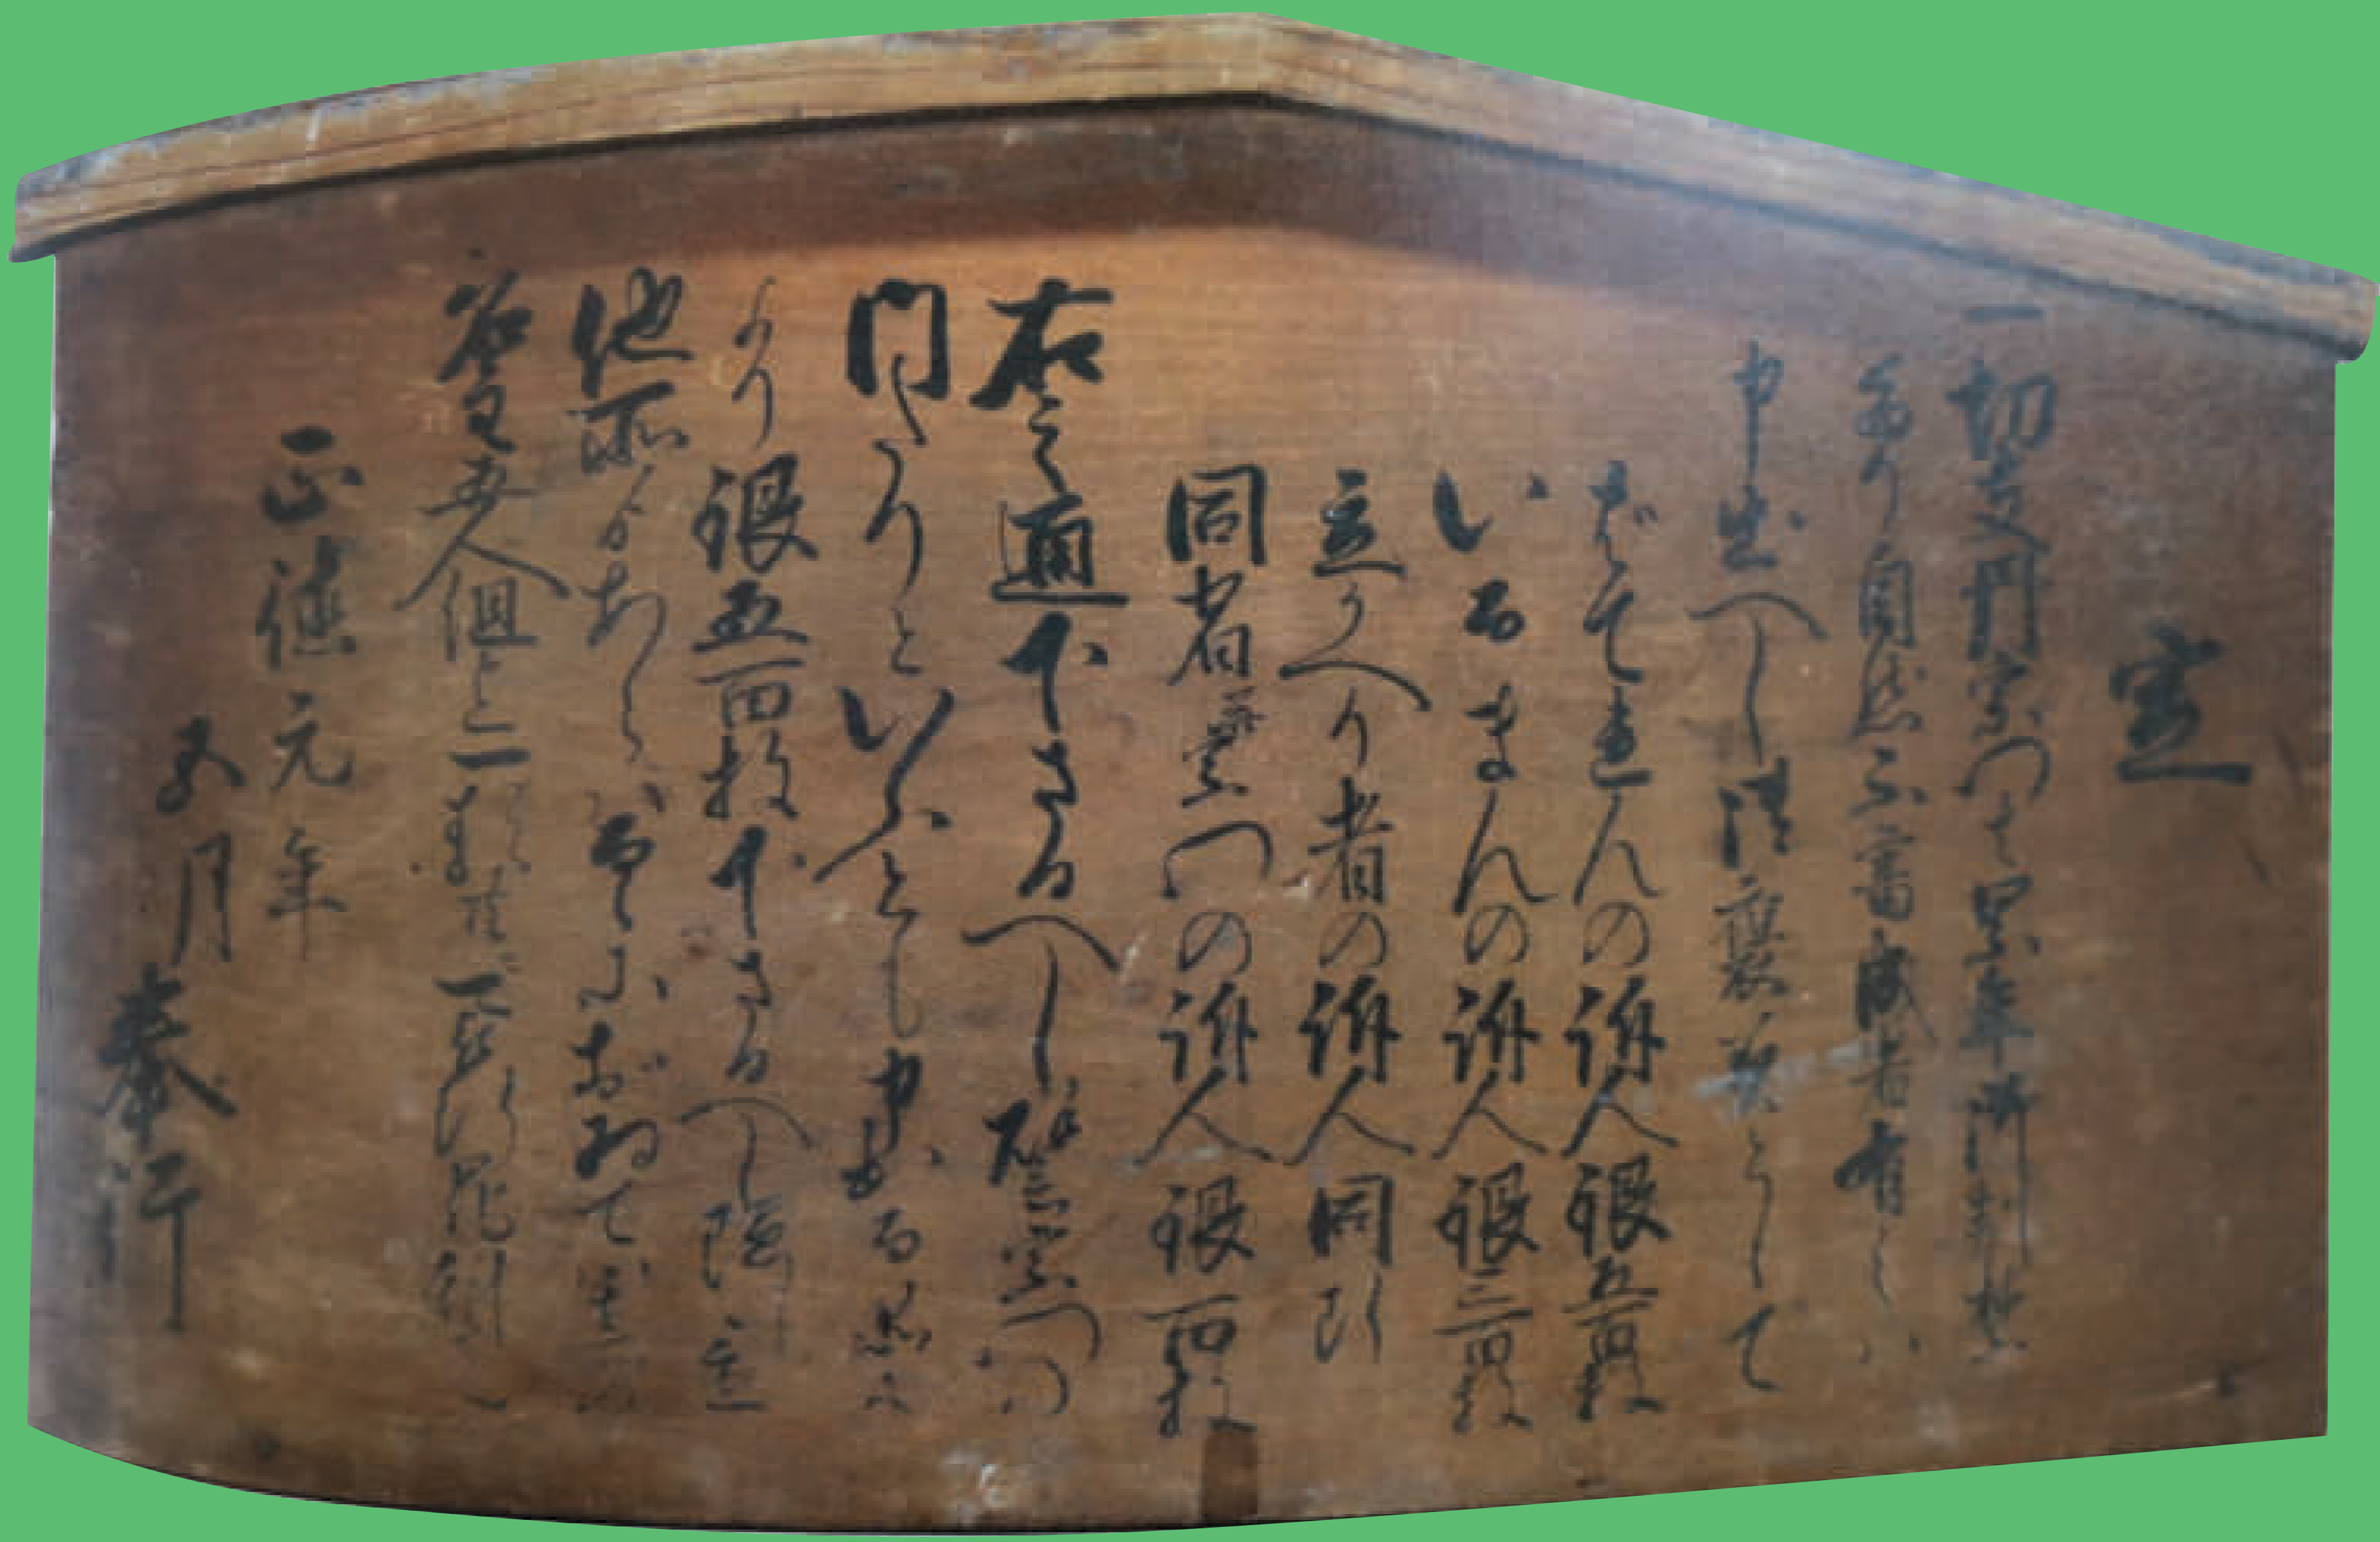 定
一切支丹宗門は累年御制禁
たり自然不審成者有之ハ
申出へし御褒美として
ばてれんの訴人銀五百枚
いるまんの訴人銀三百枚
立かへり者の訴人同断
同宿并宗門の訴人銀百枚
右之通下さるへし たとひ宗門の
内たりといふとも申出る品に
より銀五百枚下さるへし隠し置
他所よりあらはるゝにおゐては其所の
名主并五人組迄一類共ニ可処罪科
正徳元年
五月
奉行